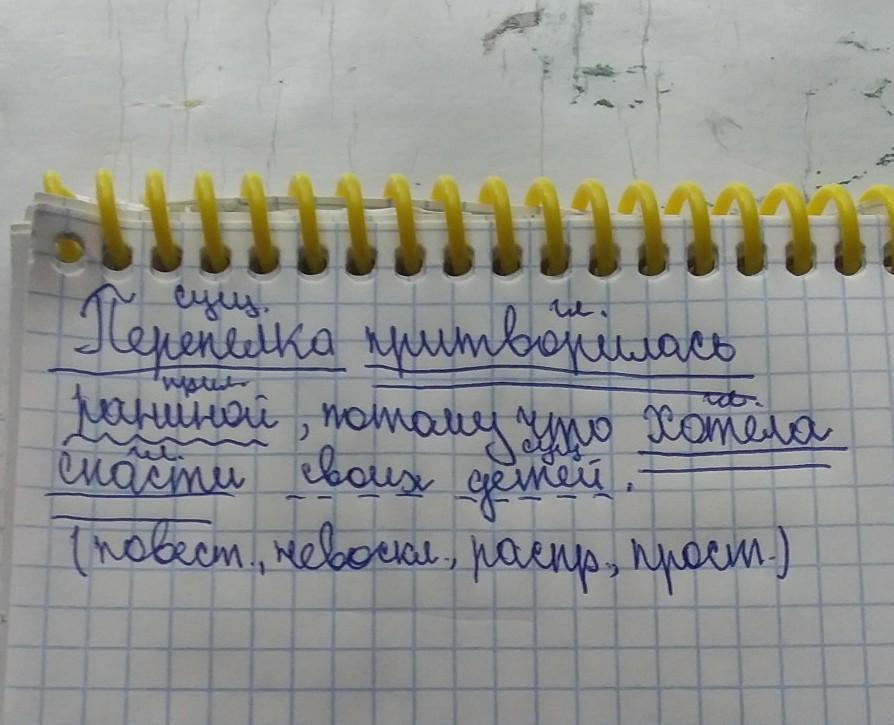 сущ. гл.
Перепелка притворилась
прил. гл.
раниной, потому что хотела
гл. сущ
спасти своих детей.
(повест., невоскл., распр., прост.)